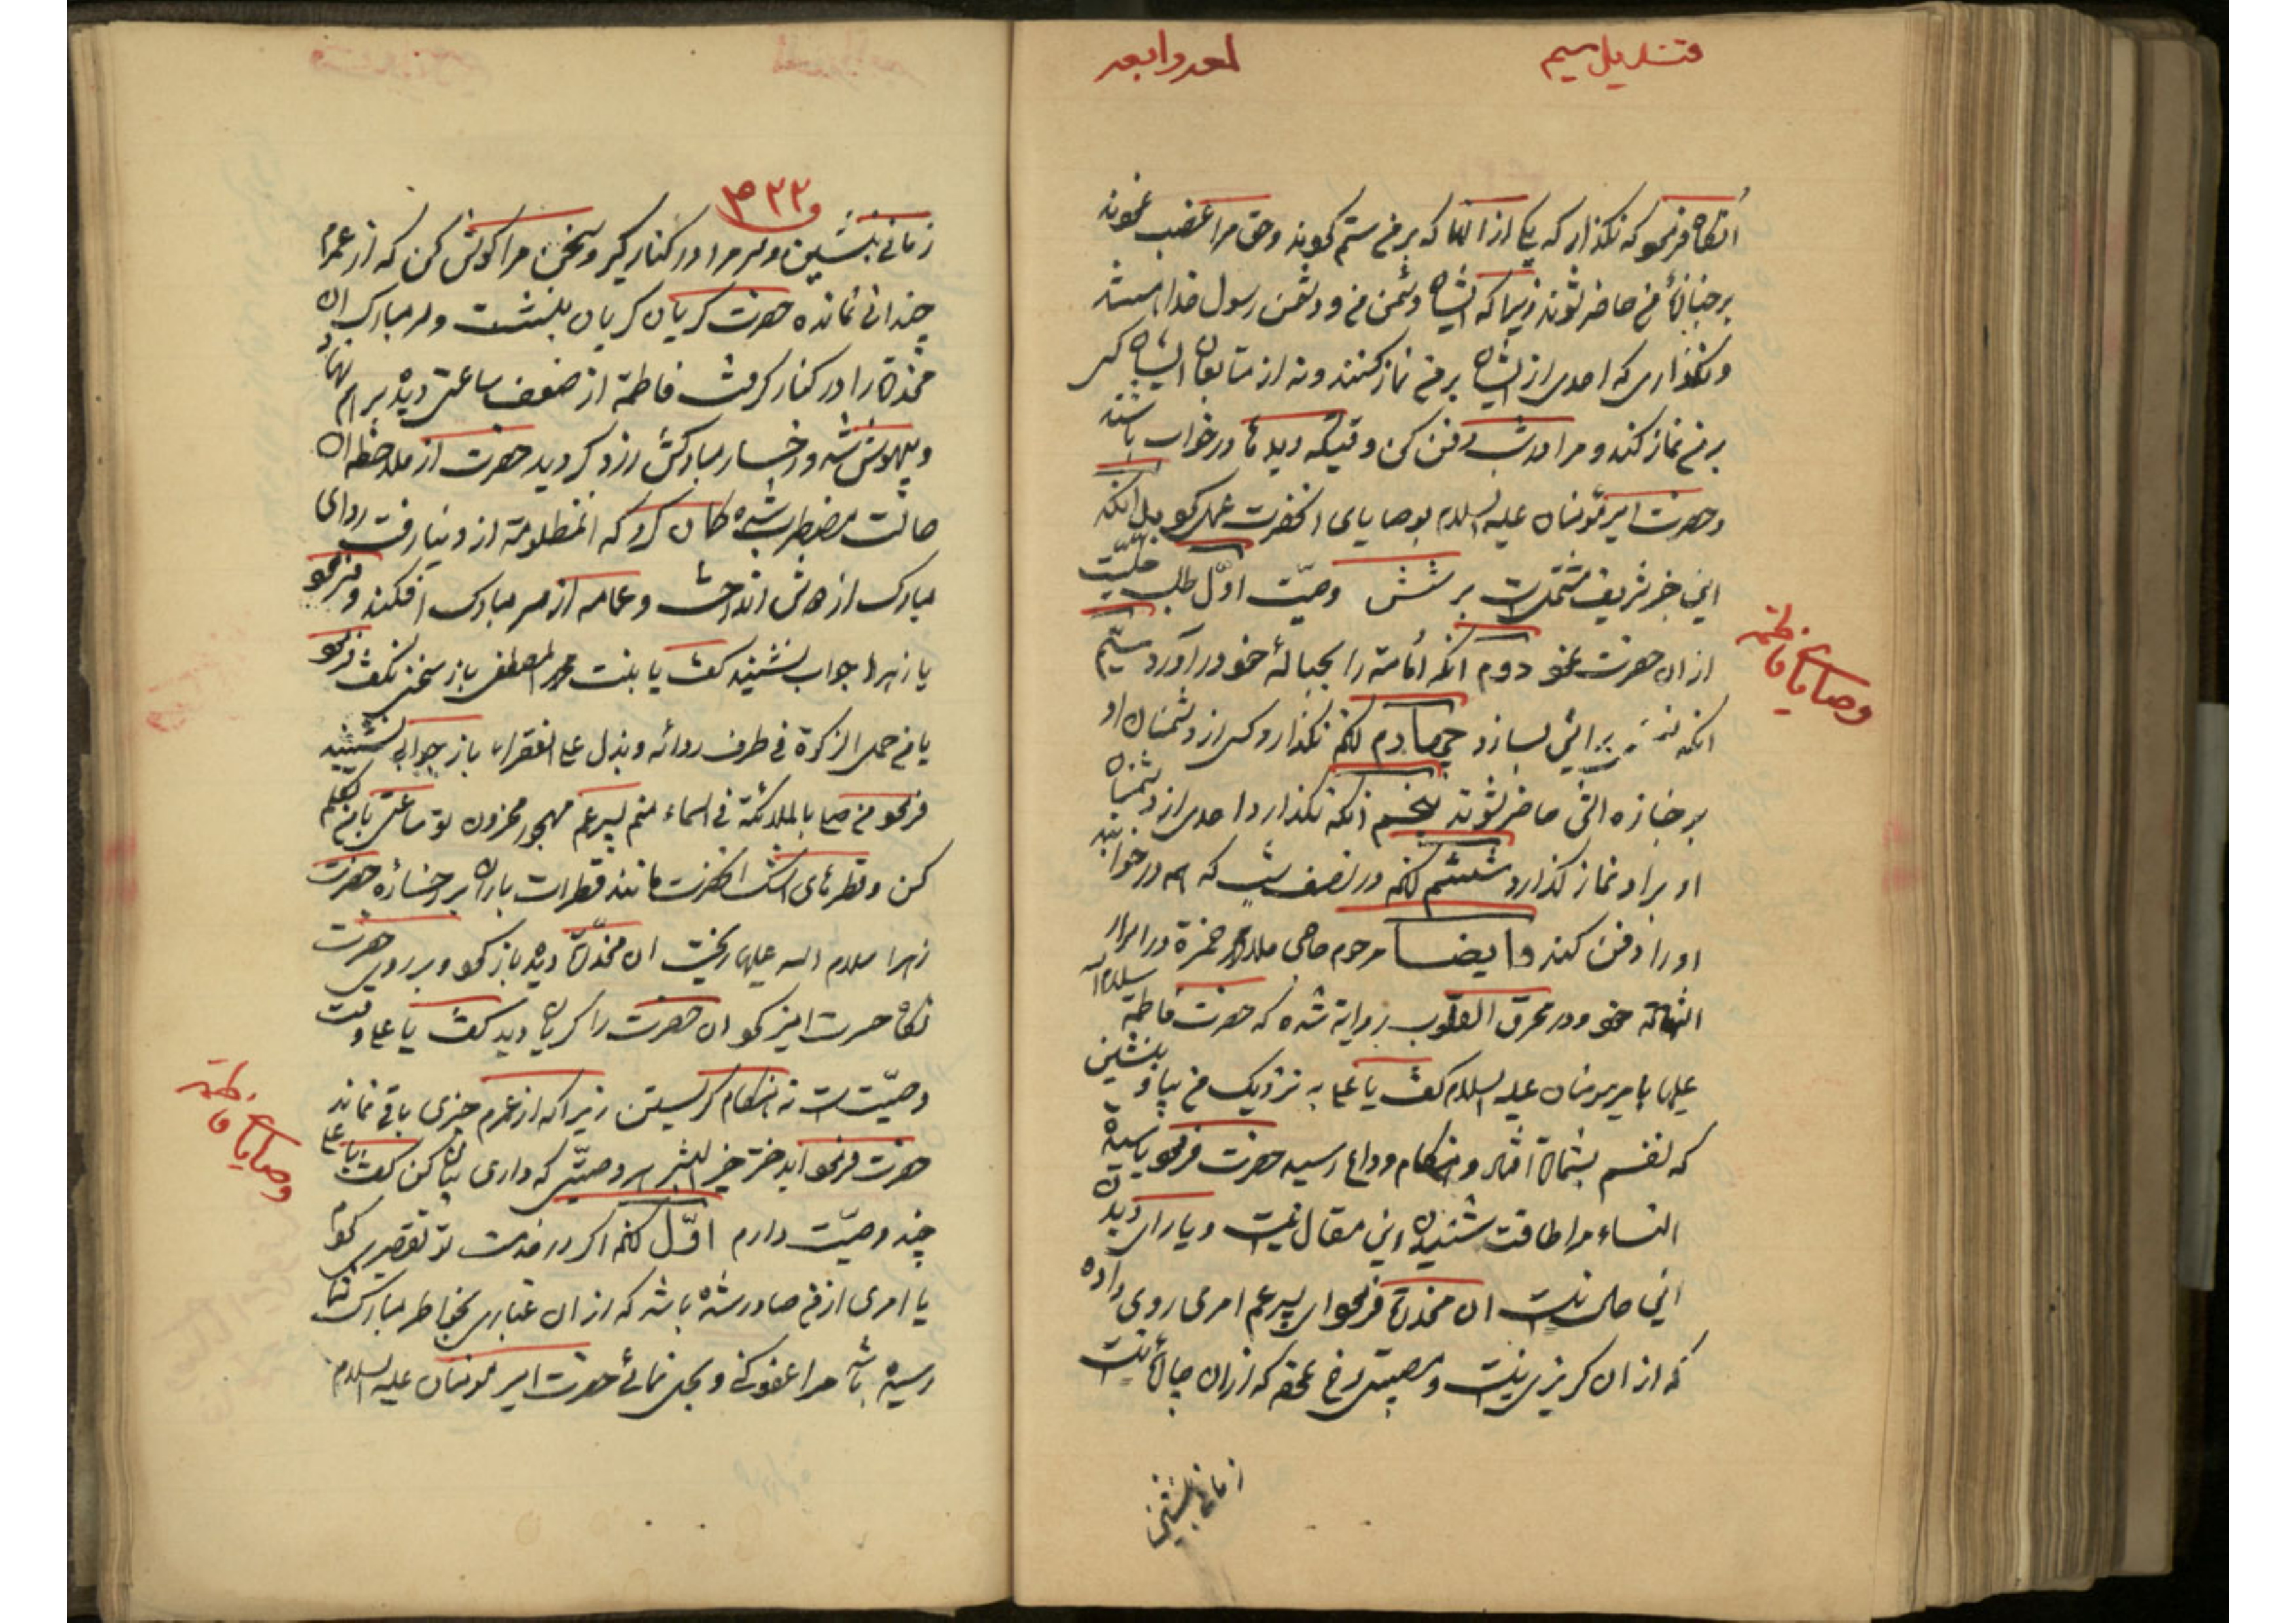 قندیل سیم
انگاه فرمود که نگذار که یکی از انها که بر من ستم کردند و حق مرا غضب نمودند
بر جنازهٔ من حاضر شوند زیرا که ایشان دشمن من و دشمن رسول خدا هستند
و نگذاری که احدی از ایشان بر من نماز کنند و نه از متابعان ایشان کسی
بر من نماز کند و مرا در شب دفن کن وقتیکه دیدها در خواب باشند
و حضرت امیر مؤمنان علیه السلام بوصایای انحضرت عمل نمود بدانکه
این خبر شریف مشتمل است بر شش وصیّت اوّل طلب حلیّت
از ان حضرت نمود دوم آنکه أمامة را بحبالهٔ خود درآورد سیّم
وصایای فاطمه
انکه برایش بسازد چهارم انکه نگذارد کسی از دشمنان او
بر جنازه اش حاضر شوند پنجم انکه نگذارد احدی از دشمنان
او بر او نماز گذارد ششم انکه در نصف شب که همه در خوابند
او را دفن کند و ایضا مرحوم حاجی ملا محمد حمزة در اسرار
الشهادة خود و در محرق القلوب روایة شده که حضرت فاطمه سلام الله
علیها بامیر مومنان علیه السلام گفت یا علی به نزدیک من بیا و بنشین
که نفسم بشماره افتاد و هنگام وداع رسید حضرت فرمود یا سیدة
النساء مرا طاقت شنیدن این مقال نیست و یارای دیدن
این حال نیست ان مخدرة فرمود ای پسر عم امری روی داده
که از ان گریزی نیست و مصیبتی رخ نموده که از ان چارهٔ نیست
زمانی بنشین
۵۳۲۲
زمانی بنشین و سر مرا در کنار گیر و سخن مرا گوش کن که از عمرم
چندانی نمانده حضرت گریان گریان بنشست و سر مبارک ان
مخدرة را در کنار گرفت فاطمة از ضعف ساعتی دیده بر هم نهاد
و بیهوش شد و رخسار مبارکش زرد گردید حضرت از ملاحظه ان
حالت مضطرب شده گمان کرد که انمظلومة از دنیا رفت ردای
مبارک از دوش انداخت و عمامه از سر مبارک افکند و فرمود
یا زهرا جواب نشنید گفت یا بنت محمد المصطفی باز سخن نگفت فرمود
یا من حمل الزکوة فی طرف ردائه و بذل علی الفقراء باز جوابی نشنید
فرمود من صلی بالملائکة فی السماء منم پسر عم مهجور محزون تو ساعتی با من تکلم
کن و قطرهای اشک انحضرت مانند قطرات باران بر رخسارهٔ حضرت
زهرا سلام الله علیها ریخت ان مخدّرة دیده باز نمود و بر روی حضرت
نگاه حسرت امیز نمود ان حضرت را گریان دید گفت یا علی وقت
وصیّت است نه هنگام گریستن زیرا که از عمرم چیزی باقی نمانده
حضرت فرمود ایدختر خیر البشر هر وصیّتی که داری بیان کن گفت یا علی
وصایای فاطمه
چند وصیّت دارم اوّل انکه اگر در خدمت تو تقصیری کردم
یا امری از من صادر شده باشد که از ان غباری بخاطر مبارک شما
رسیده باشد مرا عفو کنی و بحل نمائی حضرت امیر مومنان علیه السلام